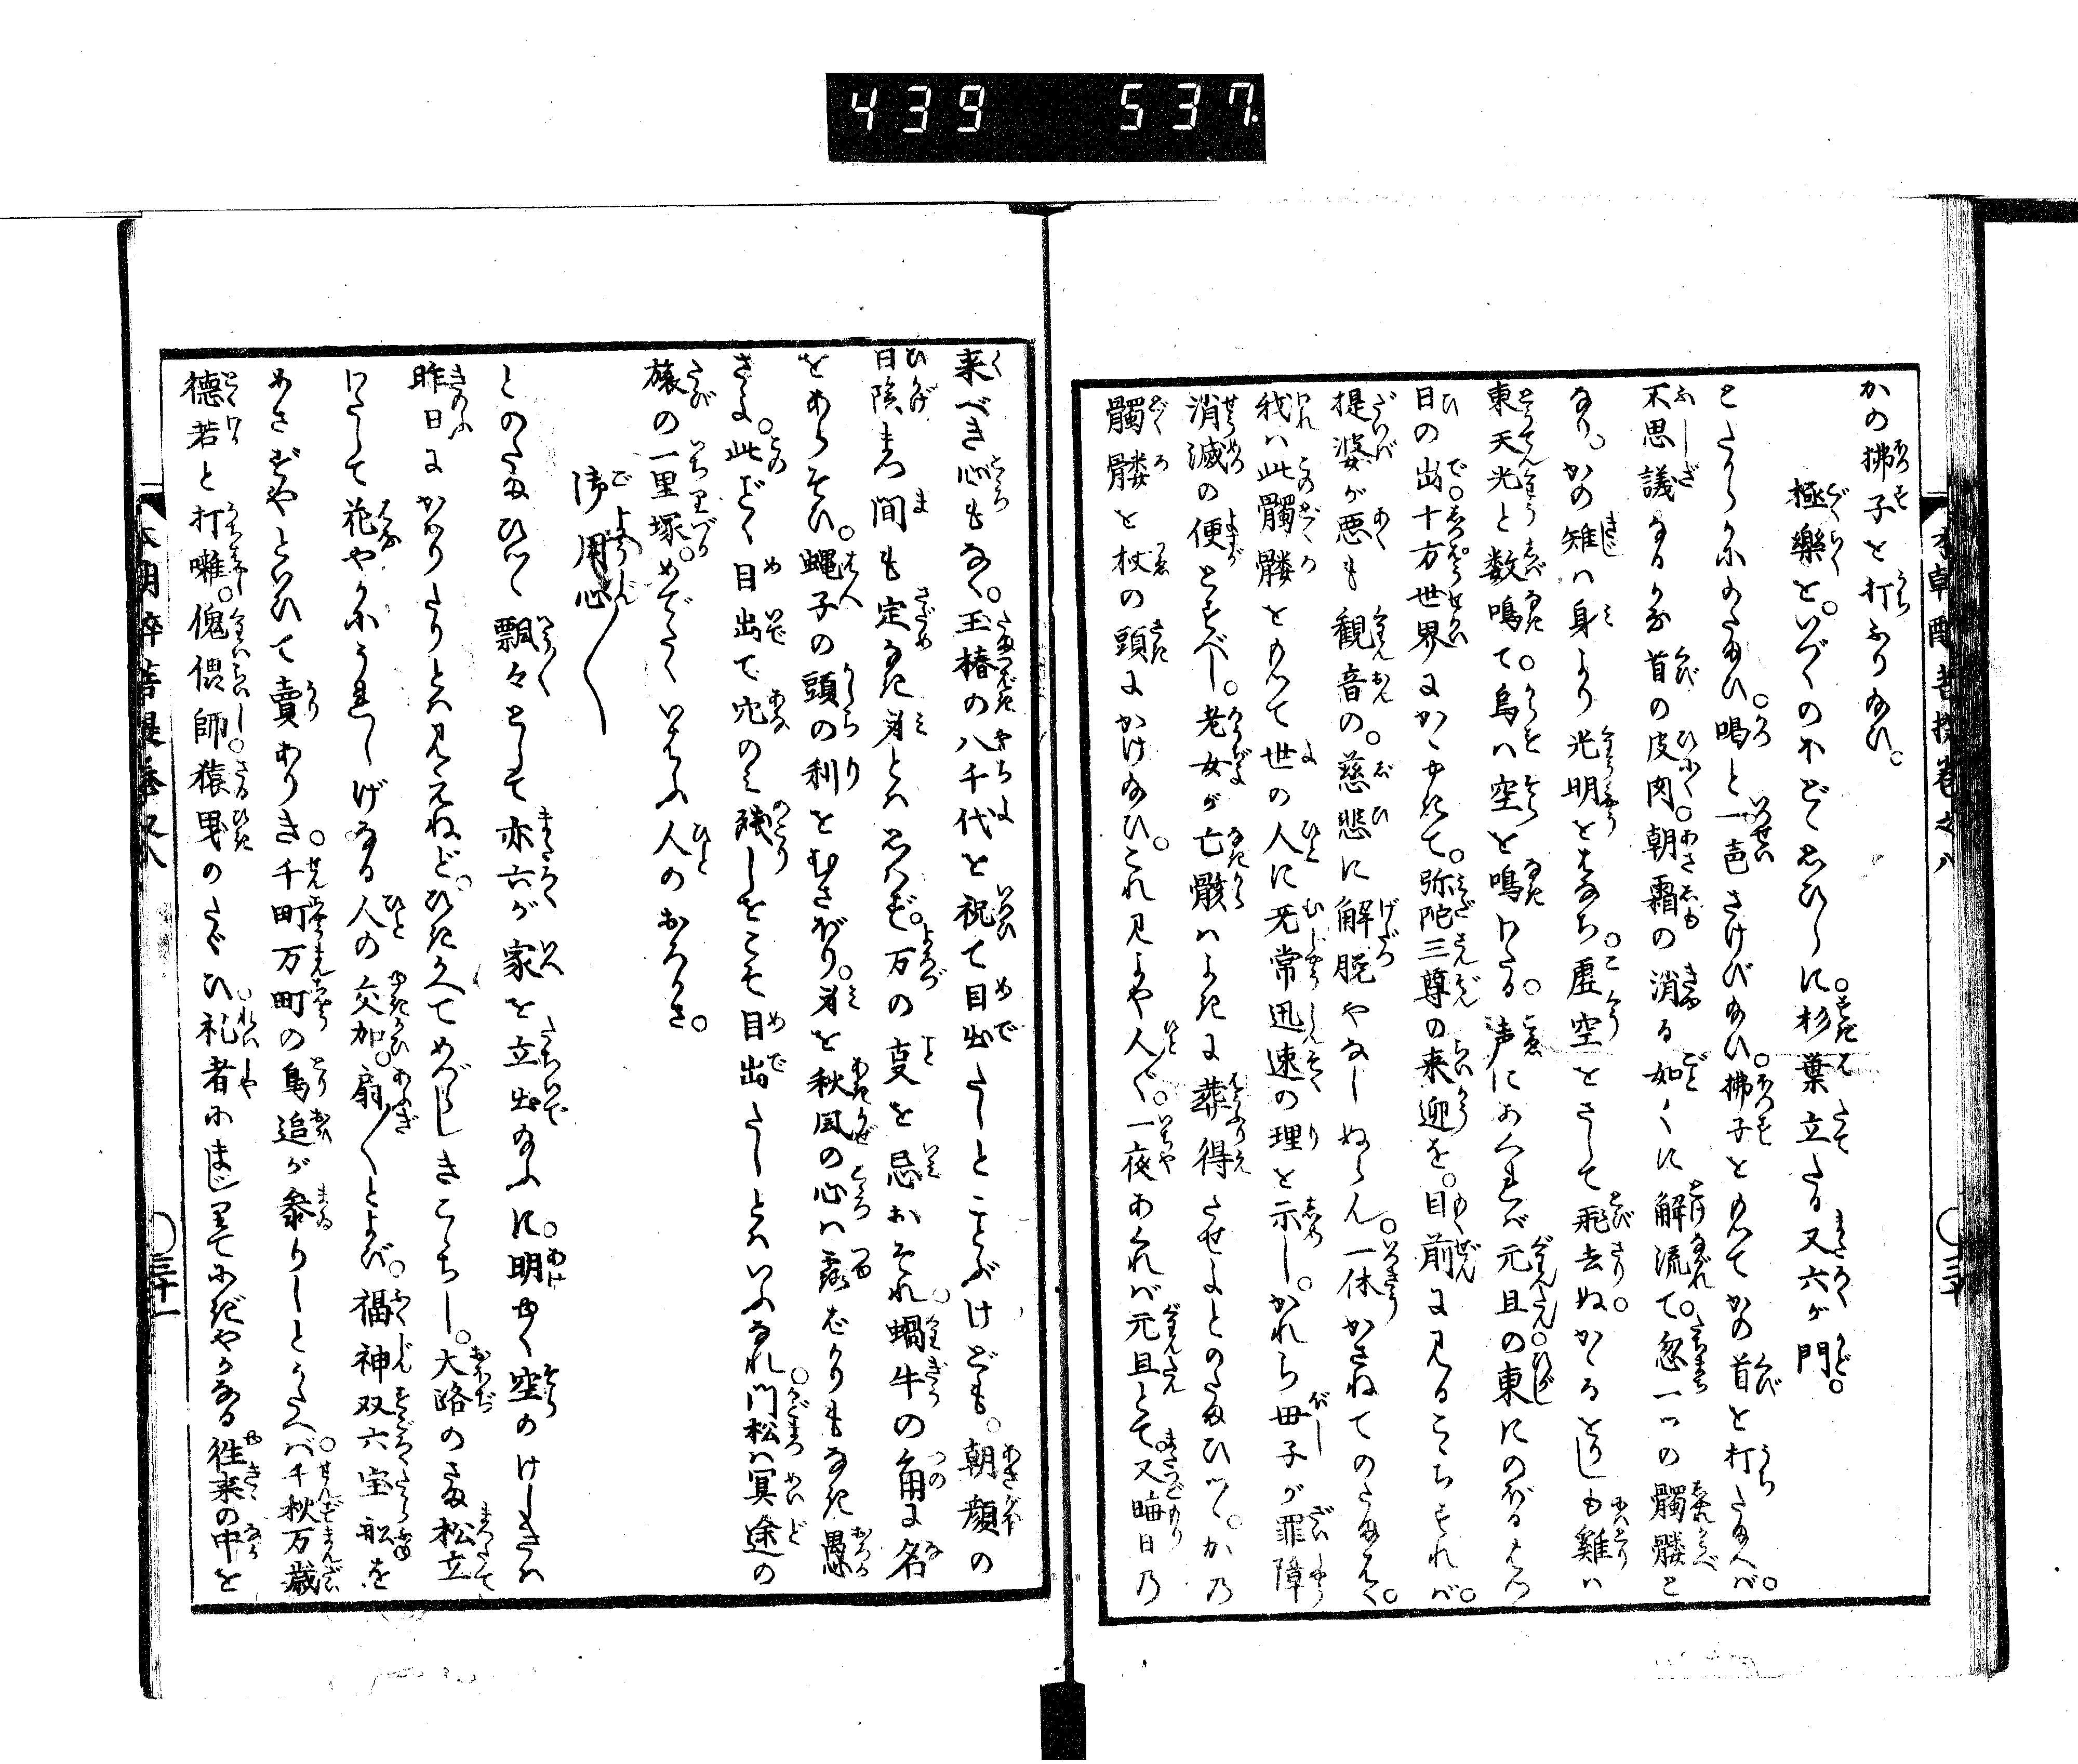 439 537.
本朝酔菩提巻之八
かの拂子を打ふり給ひ。
極樂を。いづくのほどゝおひしに杉葉立たる又六が門。
とたからかにのたまひ。喝と一声さけび給ひ。拂子をもつてかの首を打たまへば。
不思議なるかな首の皮肉。朝霜の消る如くに解流て。忽一ッの髑髏と
なり。かの雉は身より光明をはなち。虚空をさして飛去ぬ。かゝるをりしも雞は
東天光と数鳴て。烏は空を鳴わたる。声にあくれば元旦の東にのぼるはつ
日の出。十方世界にかゝやきて。弥陀三尊の来迎を。目前に見るこゝちすれば。
提婆が悪も観音の。慈悲に解脱やなしぬらん。一休かさねてのたまはく。
我は此髑髏をもつて世の人に无常迅速の理を示し。かれら母子が罪障
消滅の便とすべし。老女が亡骸はよきに葬得させよとのたまひつゝ。かの
髑髏を杖の頭にかけ給ひ。これ見よや人〴〵。一夜あくれば元旦とて。又晦日の
〇三十
来べき心もなく。玉椿の八千代を祝て目出たしとことぶけども。朝顔の
日陰まつ間も定なき身とはおもはず。万の支を忌おそれ。蝸牛の角に名
をあらそひ。蝿子の頭の利をむさぼり。身を秋風の心は露ばかりもなき愚
さよ。此どく目出て穴のみ残しをこそ目出たしとはいふなれ。門松は冥途の
旅の一里塚。めでたくいはふ人のおろかさ。
御用心〳〵
とのたまひつゝ飄々として亦六が家を立出給ふに。明ゆく空のけしきは
昨日にかはりたりとは見えねど。ひきかへてめづらしきこゝちし。大路のさま松立
わたして花やかにうれしげなる人の交加。扇〳〵とよび。福神双六宝舩を
めさずやといひて賣ありき。千町万町の鳥追が参りしとうたへば千秋万歳
徳若と打囃。傀儡師猿曳のたぐひ礼者にまじりてにぎやかなる徃来の中を
本朝酔菩提巻之八
〇三十一